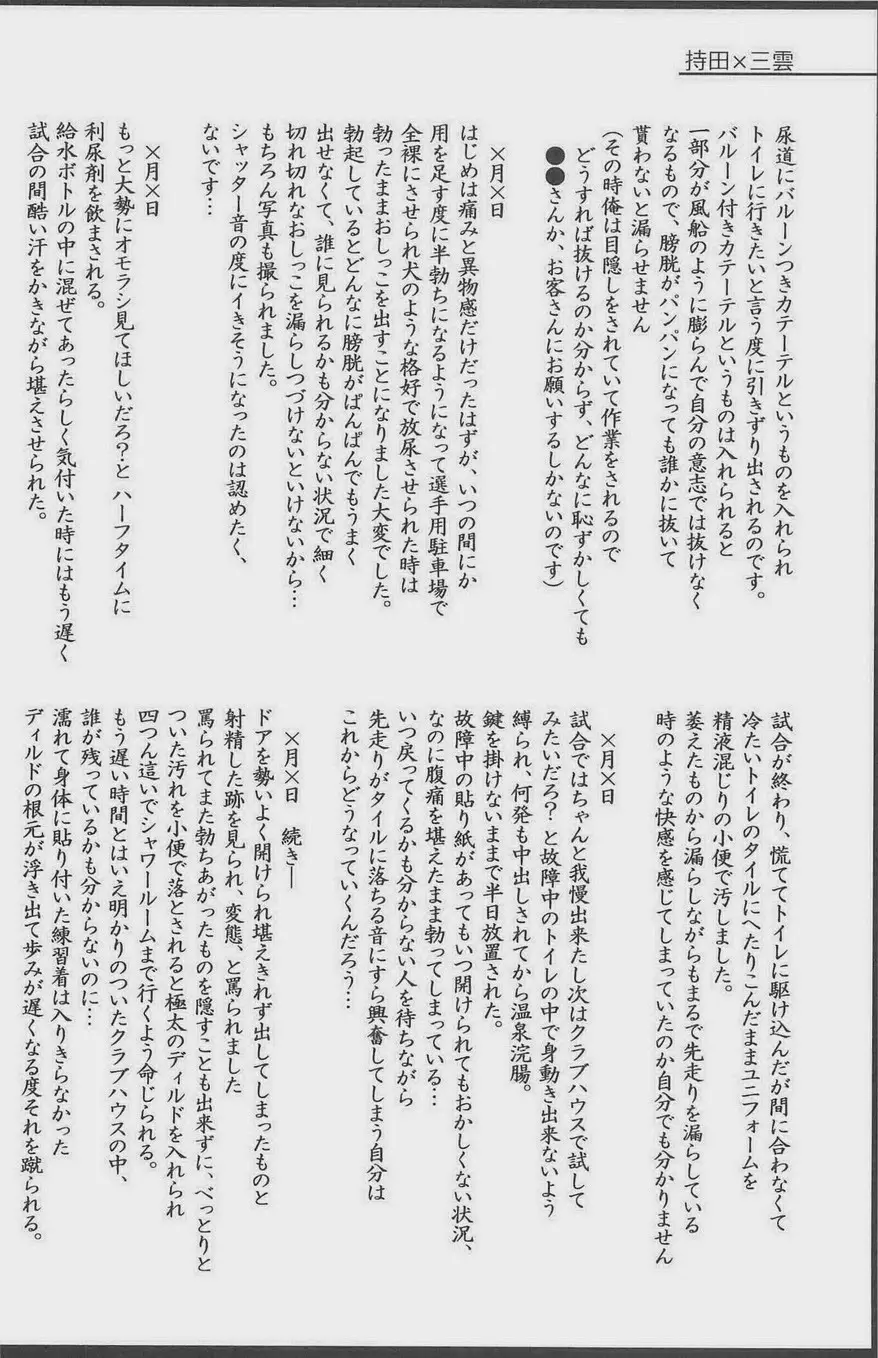 持田×三雲
尿道にバルーンつきカテーテルというものを入れられ
トイレに行きたいと言う度に引きずり出されるのです。
バルーン付きカテーテルというものは入れられると
一部分が風船のように膨らんで自分の意志では抜けなく
なるもので、膀胱がパンパンになっても誰かに抜いて
貰わないと漏らせません
（その時俺は目隠しをされていて作業をされるので
どうすれば抜けるのか分からず、どんなに恥ずかしくても
●●さんか、お客さんにお願いするしかないのです）
×月×日
はじめは痛みと異物感だけだったはずが、いつの間にか
用を足す度に半勃ちになるようになって選手用駐車場で
全裸にさせられ犬のような格好で放尿させられた時は
勃ったままおしっこを出すことになりました大変でした。
勃起しているとどんなに膀胱がぱんぱんでもうまく
出せなくて、誰に見られるかも分からない状況で細く
切れ切れなおしっこを漏らしつづけないといけないから…
もちろん写真も撮られました。
シャッター音の度にイきそうになったのは認めたく、
ないです…
×月×日
もっと大勢にオモラシ見てほしいだろ？と ハーフタイムに
利尿剤を飲まされる。
給水ボトルの中に混ぜてあったらしく気付いた時にはもう遅く
試合の間酷い汗をかきながら堪えさせられた。
試合が終わり、慌ててトイレに駆け込んだが間に合わなくて
冷たいトイレのタイルにへたりこんだままユニフォームを
精液混じりの小便で汚しました。
萎えたものから漏らしながらもまるで先走りを漏らしている
時のような快感を感じてしまっていたのか自分でも分かりません
×月×日
試合ではちゃんと我慢出来たし次はクラブハウスで試して
みたいだろ？ と故障中のトイレの中で身動き出来ないよう
縛られ、何発も中出しされてから温泉浣腸。
鍵を掛けないままで半日放置された。
故障中の貼り紙があってもいつ開けられてもおかしくない状況、
なのに腹痛を堪えたまま勃ってしまっている…
いつ戻ってくるかも分からない人を待ちながら
先走りがタイルに落ちる音にすら興奮してしまう自分は
これからどうなっていくんだろう…
×月×日　続き―
ドアを勢いよく開けられ堪えきれず出してしまったものと
射精した跡を見られ、変態、と罵られました
罵られてまた勃ちあがったものを隠すことも出来ずに、べっとりと
ついた汚れを小便で落とされると極太のディルドを入れられ
四つん這いでシャワールームまで行くよう命じられる。
もう遅い時間とはいえ明かりのついたクラブハウスの中、
誰が残っているかも分からないのに…
濡れて身体に貼り付いた練習着は入りきらなかった
ディルドの根元が浮き出て歩みが遅くなる度それを蹴られる。